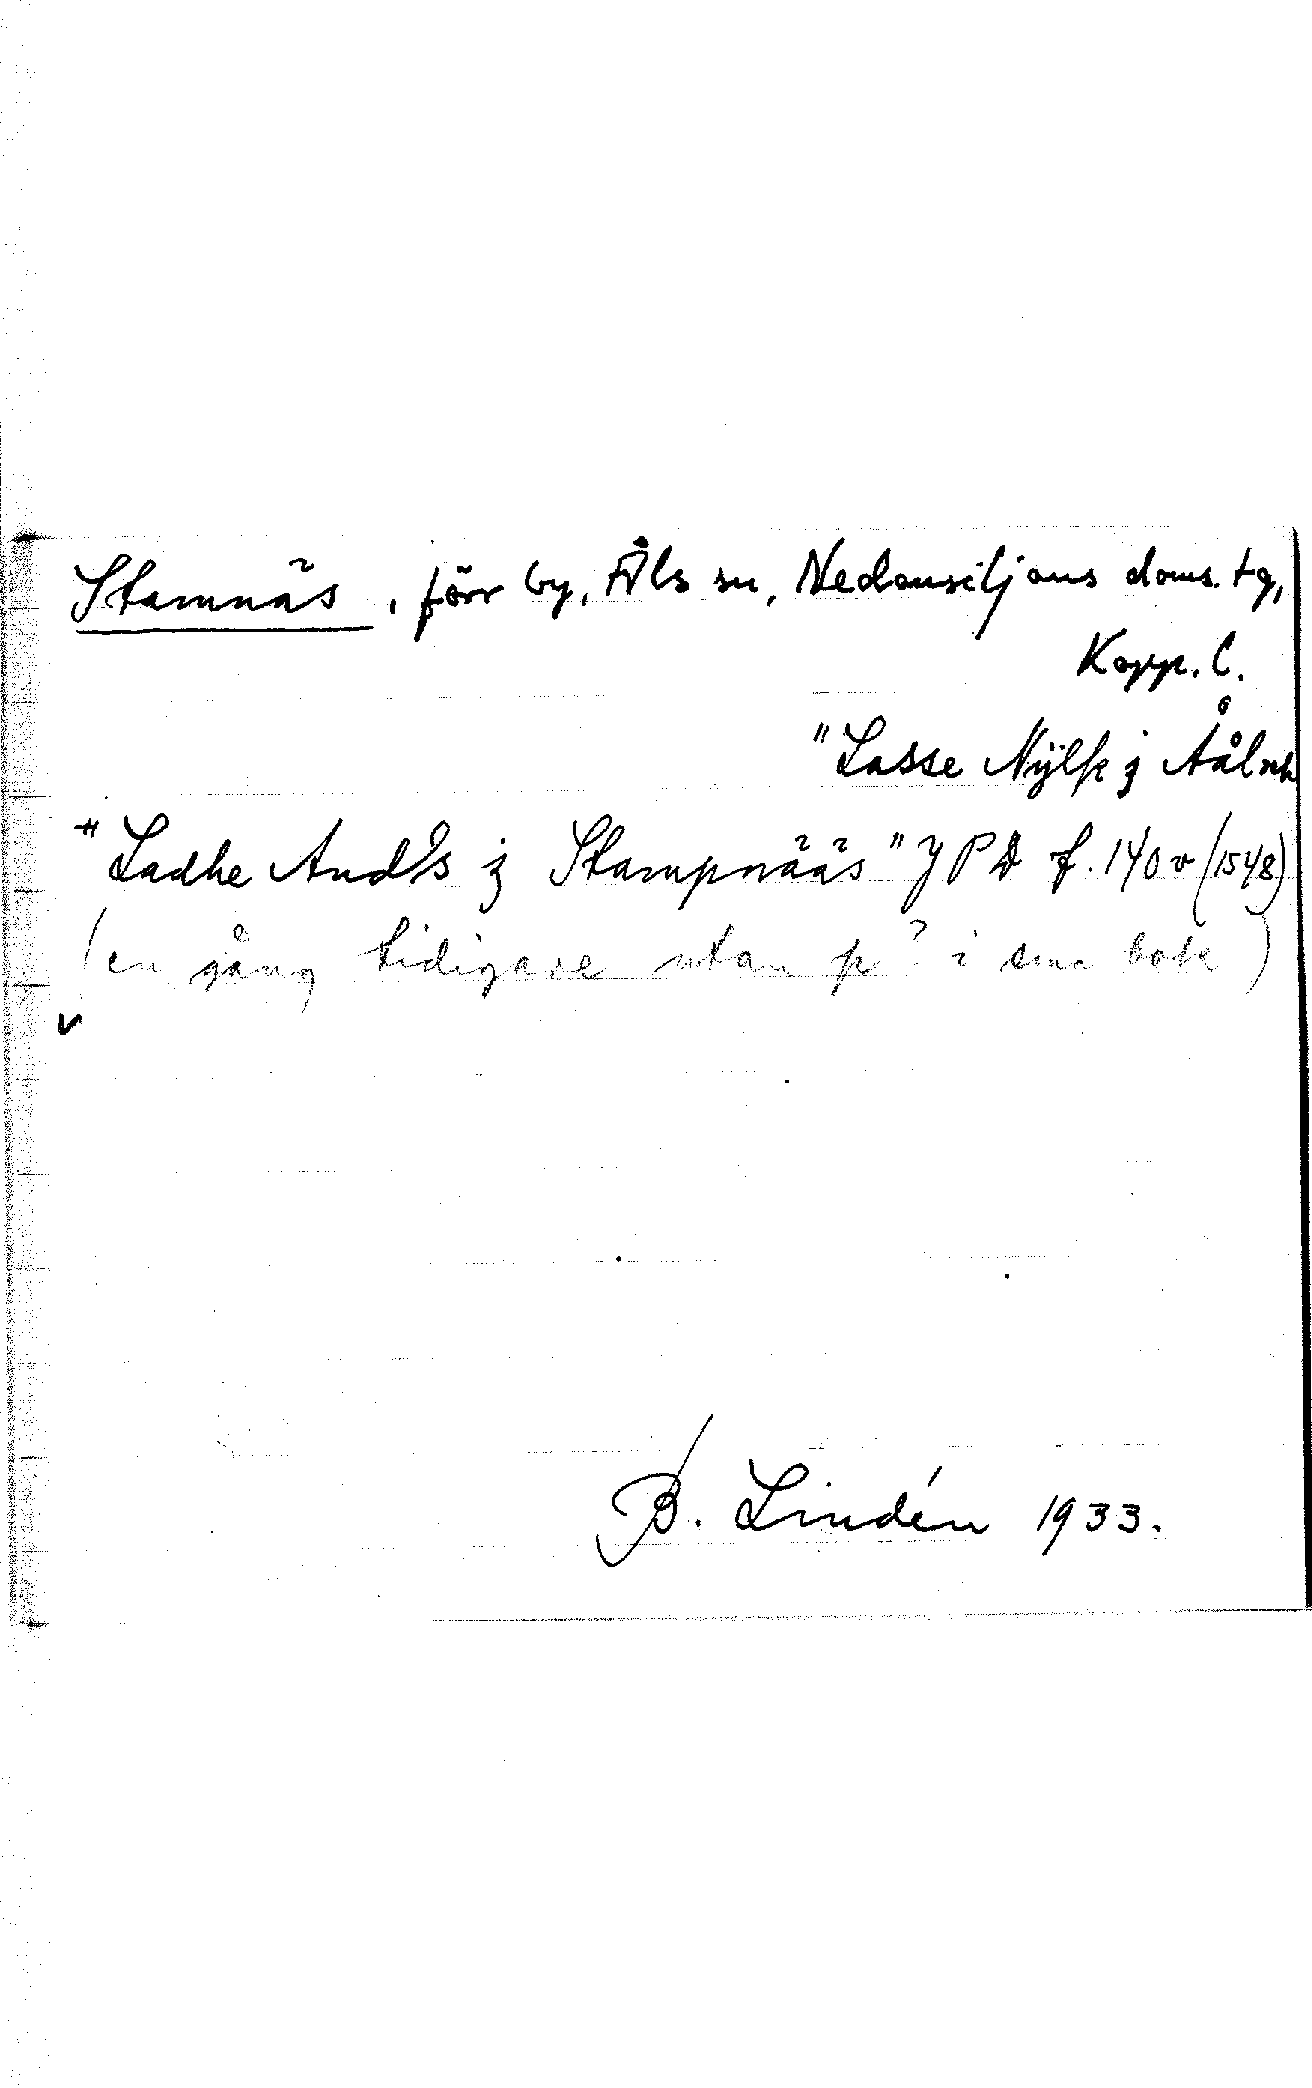 Stamnäs, förr by, Åls sn, Nedansiljans doms. tg,
Kopp. l.
"Lasse Mÿlk j Åål
"Ladhe And's j Stampnääs" J P D f. 140 v (1548)
(en gång tidigare utan p? i sma bok)
B. Lindén 1933.